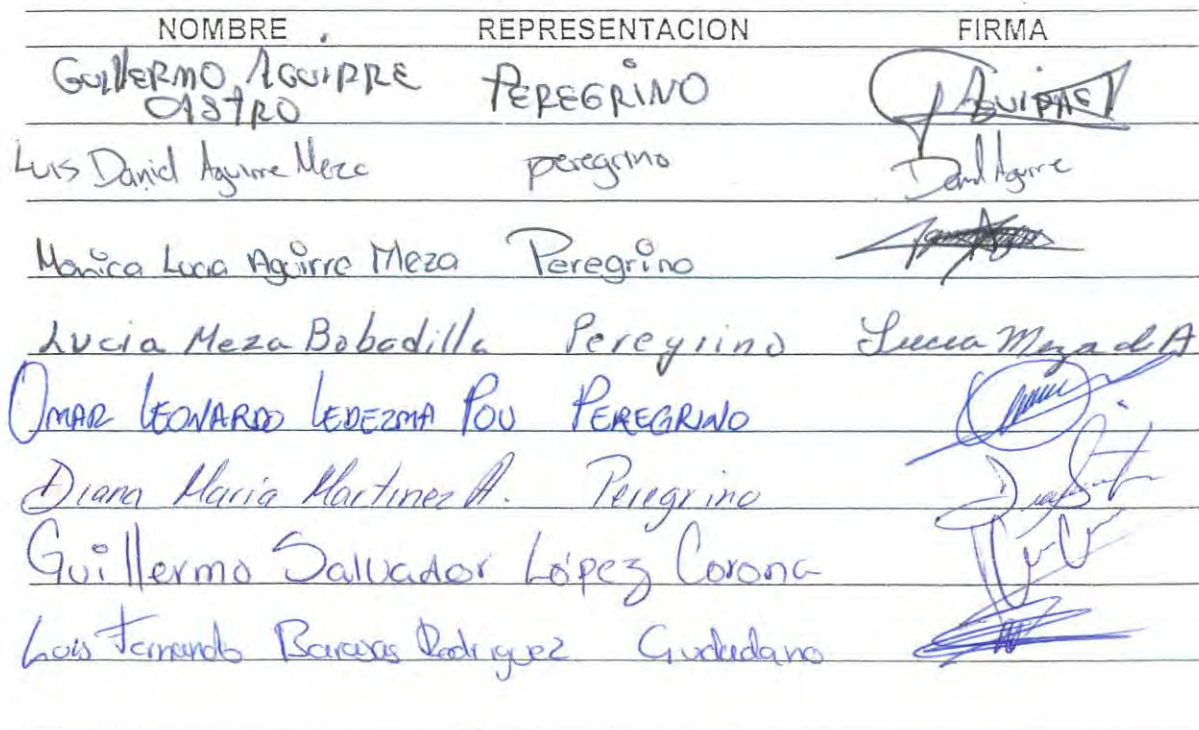 NOMBRE REPRESENTACION FIRMA
GUILLERMO AGUIRRE PEREGRINO AGUIRRE
CASTRO
Luis Daniel Aguirre Meza peregrino Daniel Aguirre
Monica Lucia Aguirre Meza Peregrino
Lucia Meza Bobadilla Peregrino Lucia Meza de A
OMAR LEONARDO LEDEZMA POU PEREGRINO
Diana María Martinez A. Peregrino
Guillermo Salvador López Corona
Luis Fernando Barajas Rodriguez Ciudadano